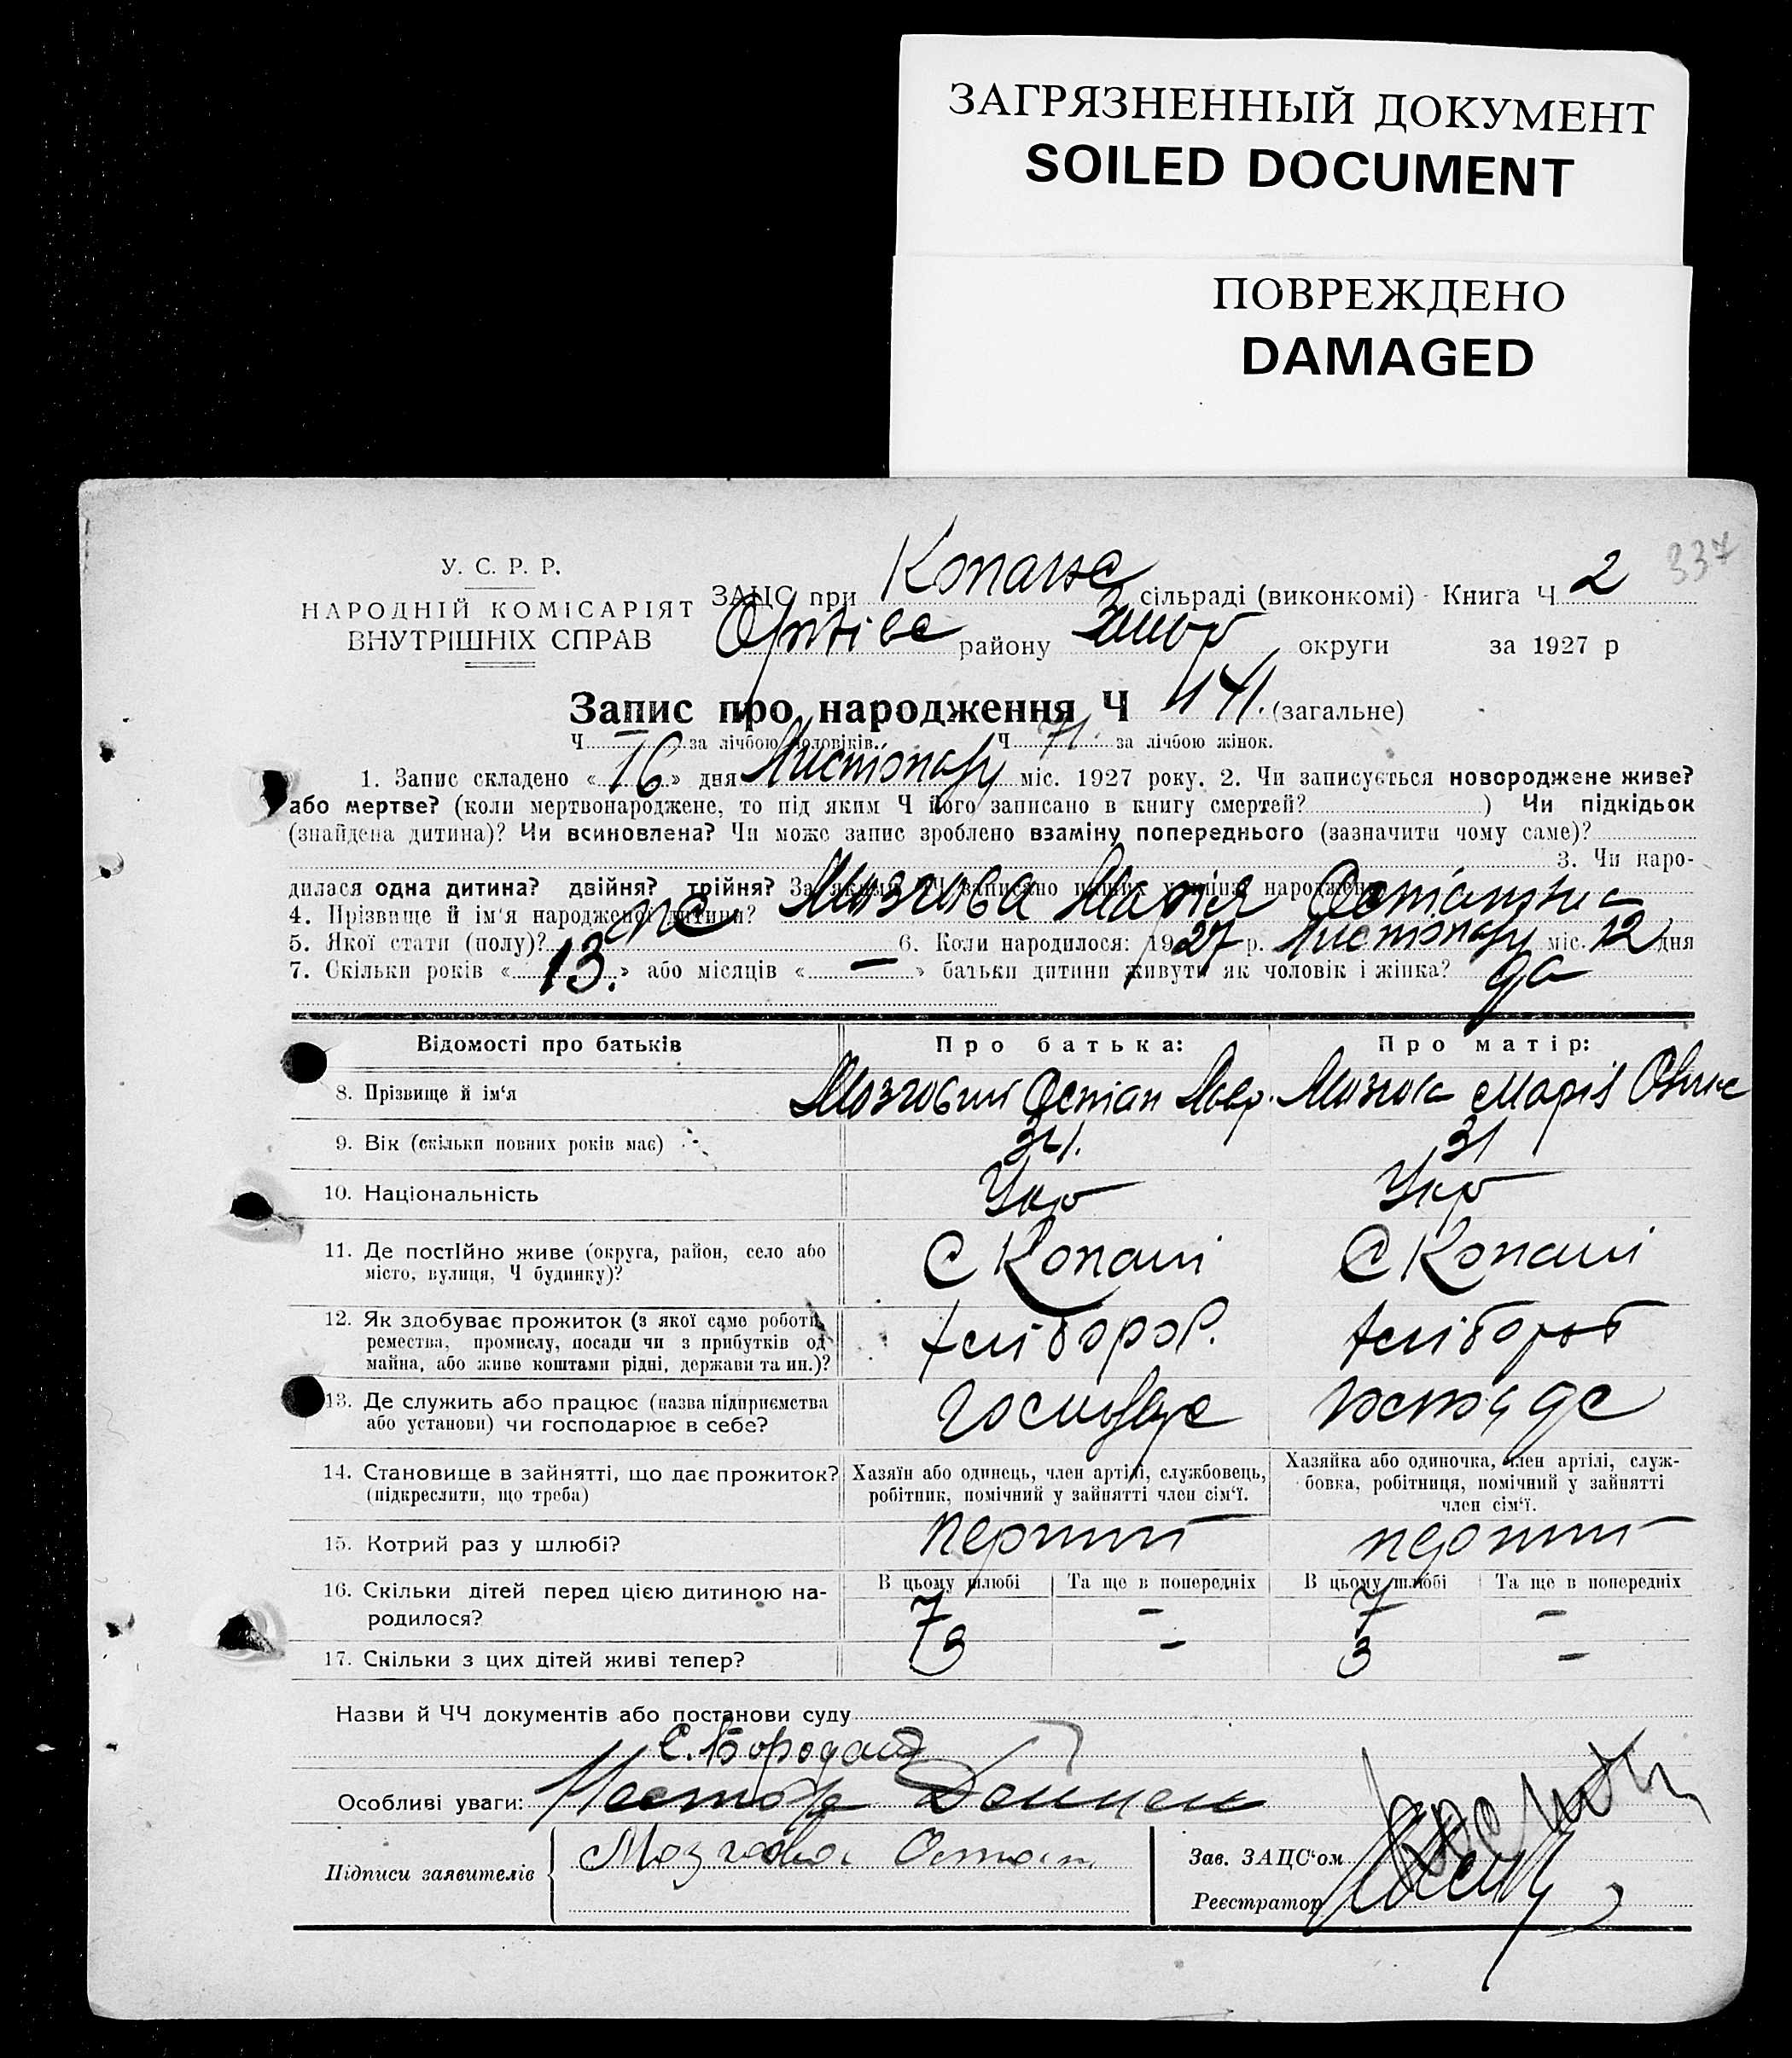 ЗАГРЯЗНЕННЫЙ ДОКУМЕНТ
SOILED DOCUMENT
ПОВРЕЖДЕНО
DAMAGED
337
У. С. Р. Р.
НАРОДНІЙ КОМІСАРІЯТ
ВНУТРІШНІХ СПРАВ
ЗАЦС при сільраді (виконкомі) - Книга Ч 2
району округи за 1927 р
Запис про народження Ч 141. (загальне)
Ч — за лічбою чоловіків. Ч 71. за лічбою жінок.
1. Запис складено «16» дня Листопаду міс. 1927 року. 2. Чи записується новороджене живе?
або мертве? (коли мертвонароджене, то під яким Ч його записано в книгу смертей? ) Чи підкідьок
(знайдена дитина)? Чи всиновлена? Чи може запис зроблено взаміну попереднього (зазначити чому саме)?
3. Чи наро-
дилася одна дитина? двійня? трійня? За якими ЧЧ записано инших у книзі народжень
4. Прізвище й ім'я народженої дитини? Мозгова Марія
5. Якої стати (полу)? же 6. Коли народилося: 1927 р. Листопаду міс. 12 дня
7. Скільки років «13.» або місяців «—» батьки дитини живуть як чоловік і жінка? да
Відомості про батьків Про батька: Про матір:
8. Прізвище й ім'я Мозговий Остап Мозгова Марія
9. Вік (скільки повних років має) 34. 31
10. Національність Укр Укр
11. Де постІйно живе (округа, район, село або
місто, вулиця, Ч будинку)? С Копані С Копані
12. Як здобуває прожиток (з якої саме роботи,
ремества, промислу, посади чи з прибутків од
майна, або живе коштами рідні, держави та ин.)? хлібороб. хлібороб
13. Де служить або працює (назва підприємства
або установи) чи господарює в себе?
14. Становище в зайнятті, що дає прожиток?
(підкреслити, що треба)
Хазяїн або одинець, член артілі, службовець,
робітник, помічний у зайнятті член сім'ї.
Хазяйка або одиночка, член артілі, служ-
бовка, робітниця, помічний у зайнятті
член сім'ї.
15. Котрий раз у шлюбі? перший перший
16. Скільки дітей перед цією дитиною на-
родилося?
В цьому шлюбі Та ще в попередніх В цьому шлюбі Та ще в попередніх
7 — 7 —
17. Скільки з цих дітей живі тепер? 3 — 3 —
Назви й ЧЧ документів або постанови суду
С. Бородай
Особливі уваги:
Підписи заявителів Мозгова Остап
Зав. ЗАЦС'ом
Реєстратор